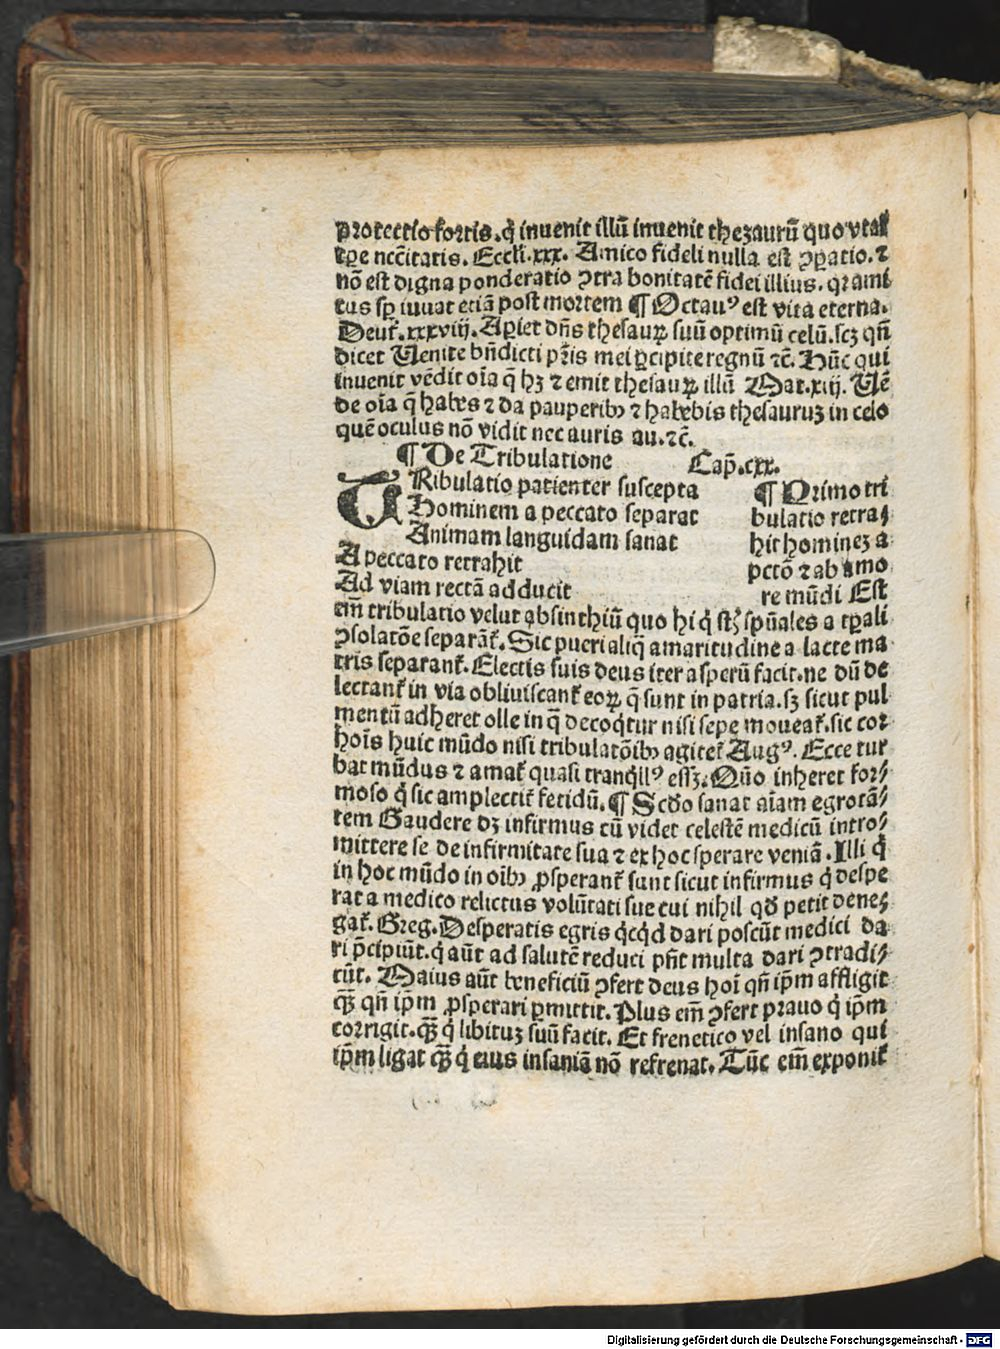 protectio fortis. q̇ inuenit illū inuenit thezaurū quo vtat̃
tꝑe nc̄citatis. Eccli. xxx. Amico fideli nulla est ꝯꝑatio. ⁊
nō est digna ponderatio ꝯtra bonitatē fidei illius. qꝛ ami
cus sꝑ iuuat etiā post mortem ¶ Octauꝰ est vita eterna.
Deut̃. xxxviij. Aꝑiet dn̄s thesauꝝ suū optimū celū. scꝫ qn̄
dicet Uenite bn̄dicti pr̄is mei ꝑcipite regnū ⁊c̄. Hūc qui
inuenit vēdit oīa q̄ hꝫ ⁊ emit thesauꝝ illū Mat. xiij. Uē
de oīa q̄ habes ⁊ da pauperibꝫ ⁊ habebis thesauruꝫ in celo
quē oculus nō vidit nec auris au. ⁊c̄.
¶ De Tribulatione Cap̄. cxx.
TRibulatio patienter suscepta
Hominem a peccato separat
Animam languidam sanat
A peccato retrahit
Ad viam rectā adducit
¶ Primo tri
bulatio retra⸗
hit homineꝫ a
pctō ⁊ ab amo
re mūdi Est
em̄ tribulatio velut absinthiū quo hi q̇ st̄ sp̄uales a tꝑali
ꝯsolatōe separāt̃. Sic pueri aliq̄ amaritudine a lacte ma
tris separant̃. Electis suis deus iter asperū facit. ne dū de
lectant̃ in via obliuiscant̃ eoꝝ q̄ sunt in patria. sꝫ sicut pul
mentū adheret olle in q̄ decoq̇tur nisi sepe moueat̃. sic cor
hoīs huic mūdo nisi tribulatōibꝫ agitet̃ Augꝰ. Ecce tur
bat mūdus ⁊ amat̃ quasi tranq̇llꝰ essꝫ. Quō inheret for⸗
moso q̇ sic amplectit̃ fetidū. ¶ Scdo sanat aīam egrotā⸗
tem Gaudere dꝫ infirmus cū videt celestē medicū intro⸗
mittere se de infirmitate sua ⁊ ex hoc sperare veniā. Illi q̇
in hoc mūdo in oībꝫ ꝓsperant̃ sunt sicut infirmus q̇ despe
rat a medico relictus volūtati sue cui nihil qd̄ petit dene⸗
gat̃. Greg. Desperatis egris q̇cq̇d dari poscūt medici da⸗
ri p̄cipiūt. q̇ aūt ad salutē reduci pn̄t multa dari ꝯtradi⸗
cūt. Maius aūt beneficiū ꝯfert deus hoī qn̄ ip̄m affligit
qꝫ̄ qn̄ ip̄m ꝓsperari ꝑmittit. Plus em̄ ꝯfert prauo q̇ ip̄m
corrigit. qꝫ̄ q̇ libituꝫ suū facit. Et frenetico vel insano qui
ip̄m ligat qꝫ̄ q̇ eius insaniā nō refrenat. Tūc em̄ exponit̃
Digitalisierung gefördert durch die Deutsche Forschungsgemeinschaft - DFG